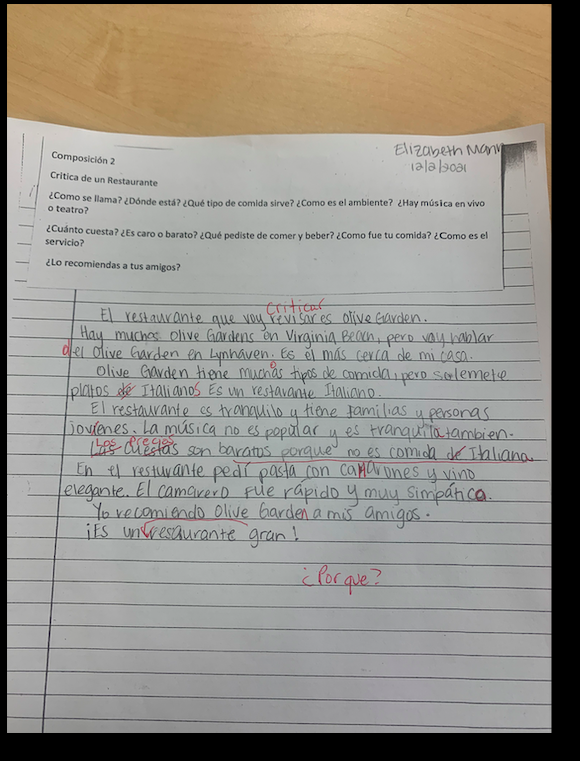 Elizabeth Mann
12/2/2021
Composición 2
Crítica de un Restaurante
¿Como se llama? ¿Dónde está? ¿Qué tipo de comida sirve? ¿Como es el ambiente? ¿Hay música en vivo
o teatro?
¿Cuánto cuesta? ¿Es caro o barato? ¿Qué pediste de comer y beber? ¿Como fue tu comida? ¿Como es el
servicio?
¿Lo recomiendas a tus amigos?
criticar
El restaurante que voy revisar es Olive Garden.
Hay muchos Olive Gardens en Virginia Beach, pero voy hablar
del Olive Garden en Lynhaven. Es el más cerca de mi casa.
Olive Garden tiene muchos tipos de comida, pero solemete
platos de Italianos Es un restavante Italiano.
El restaurante es tranquilo y tiene familias y personas
jovíenes. La música no es popular y es tranquila tambien.
Los precios
Las cuestas son baratos porque no es comida de Italiana.
En el resturante pedí pasta con camarones y vino
elegante. El camarero fue rápido y muy simpático.
Yo recomiendo Olive Garden a mis amigos.
¡Es un restaurante gran!
¿Por que?